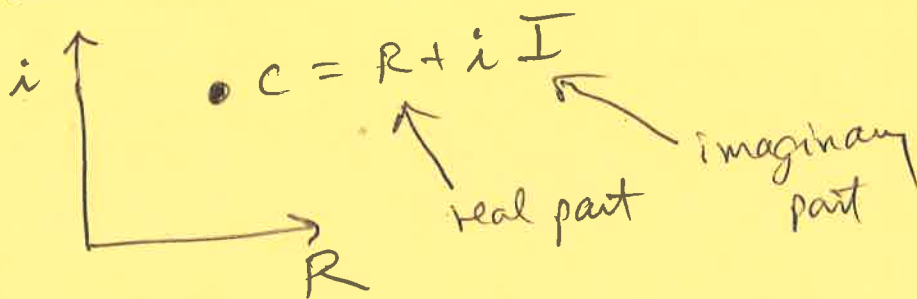 i
C = R + i I
real part
imaginary
part
R